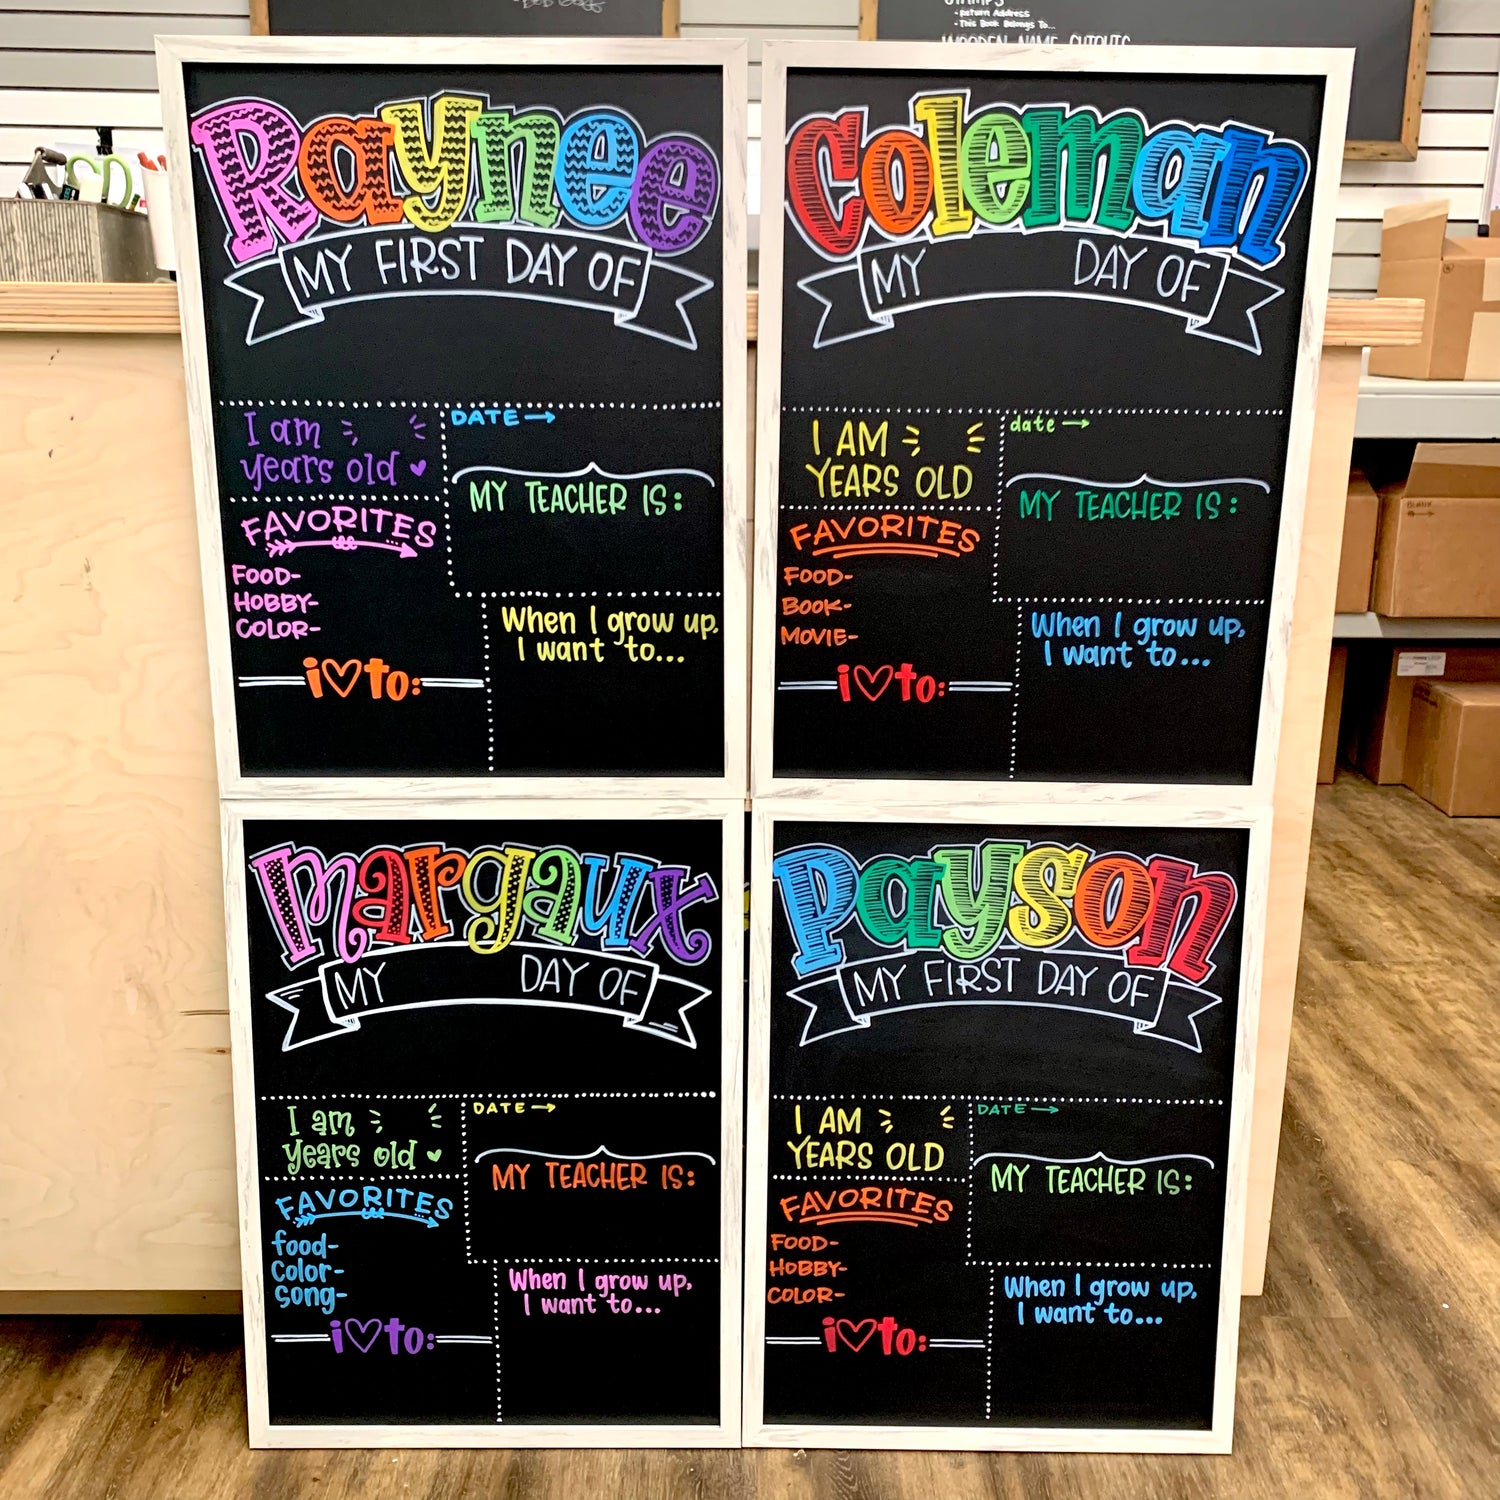 STAMPS
- Return Address
- This Book Belongs To...
WOODEN NAME CUTOUTS
Raynee
MY FIRST DAY OF
I am
years old
DATE →
MY TEACHER IS:
FAVORITES
FOOD-
HOBBY-
COLOR-
i♡to:
When I grow up,
I want to...
Coleman
MY DAY OF
I AM
YEARS OLD
date →
MY TEACHER IS:
FAVORITES
FOOD-
BOOK-
MOVIE-
i♡to:
When I grow up,
I want to...
Margaux
MY DAY OF
I am
years old
DATE →
MY TEACHER IS:
FAVORITES
food-
Color-
Song-
i♡to:
When I grow up,
I want to...
Payson
MY FIRST DAY OF
I AM
YEARS OLD
DATE →
MY TEACHER IS:
FAVORITES
FOOD-
HOBBY-
COLOR-
i♡to:
When I grow up,
I want to...